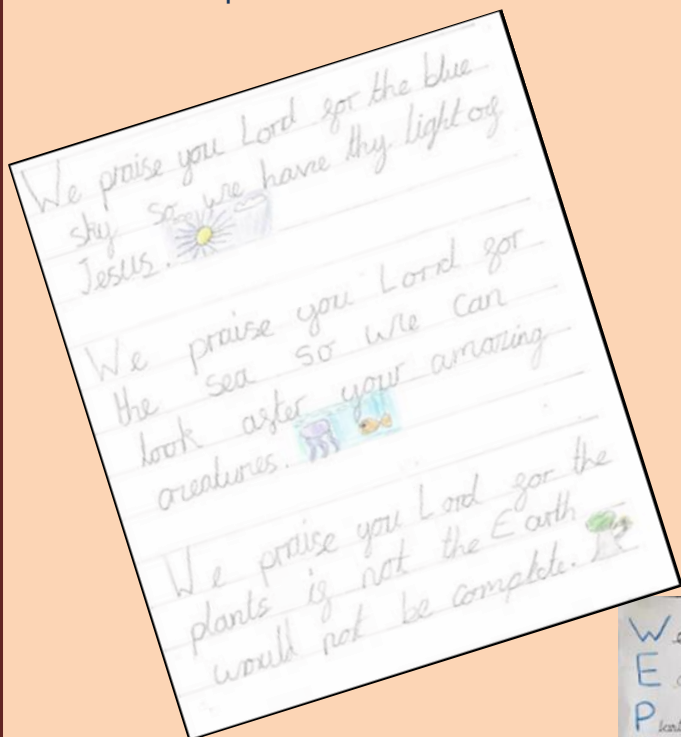 We praise you Lord for the blue
sky so we have thy light of
Jesus.
We praise you Lord for
the sea so we can
look after your amazing
creatures.
We praise you Lord for the
plants if not the Earth
would not be complete.
W
E
P